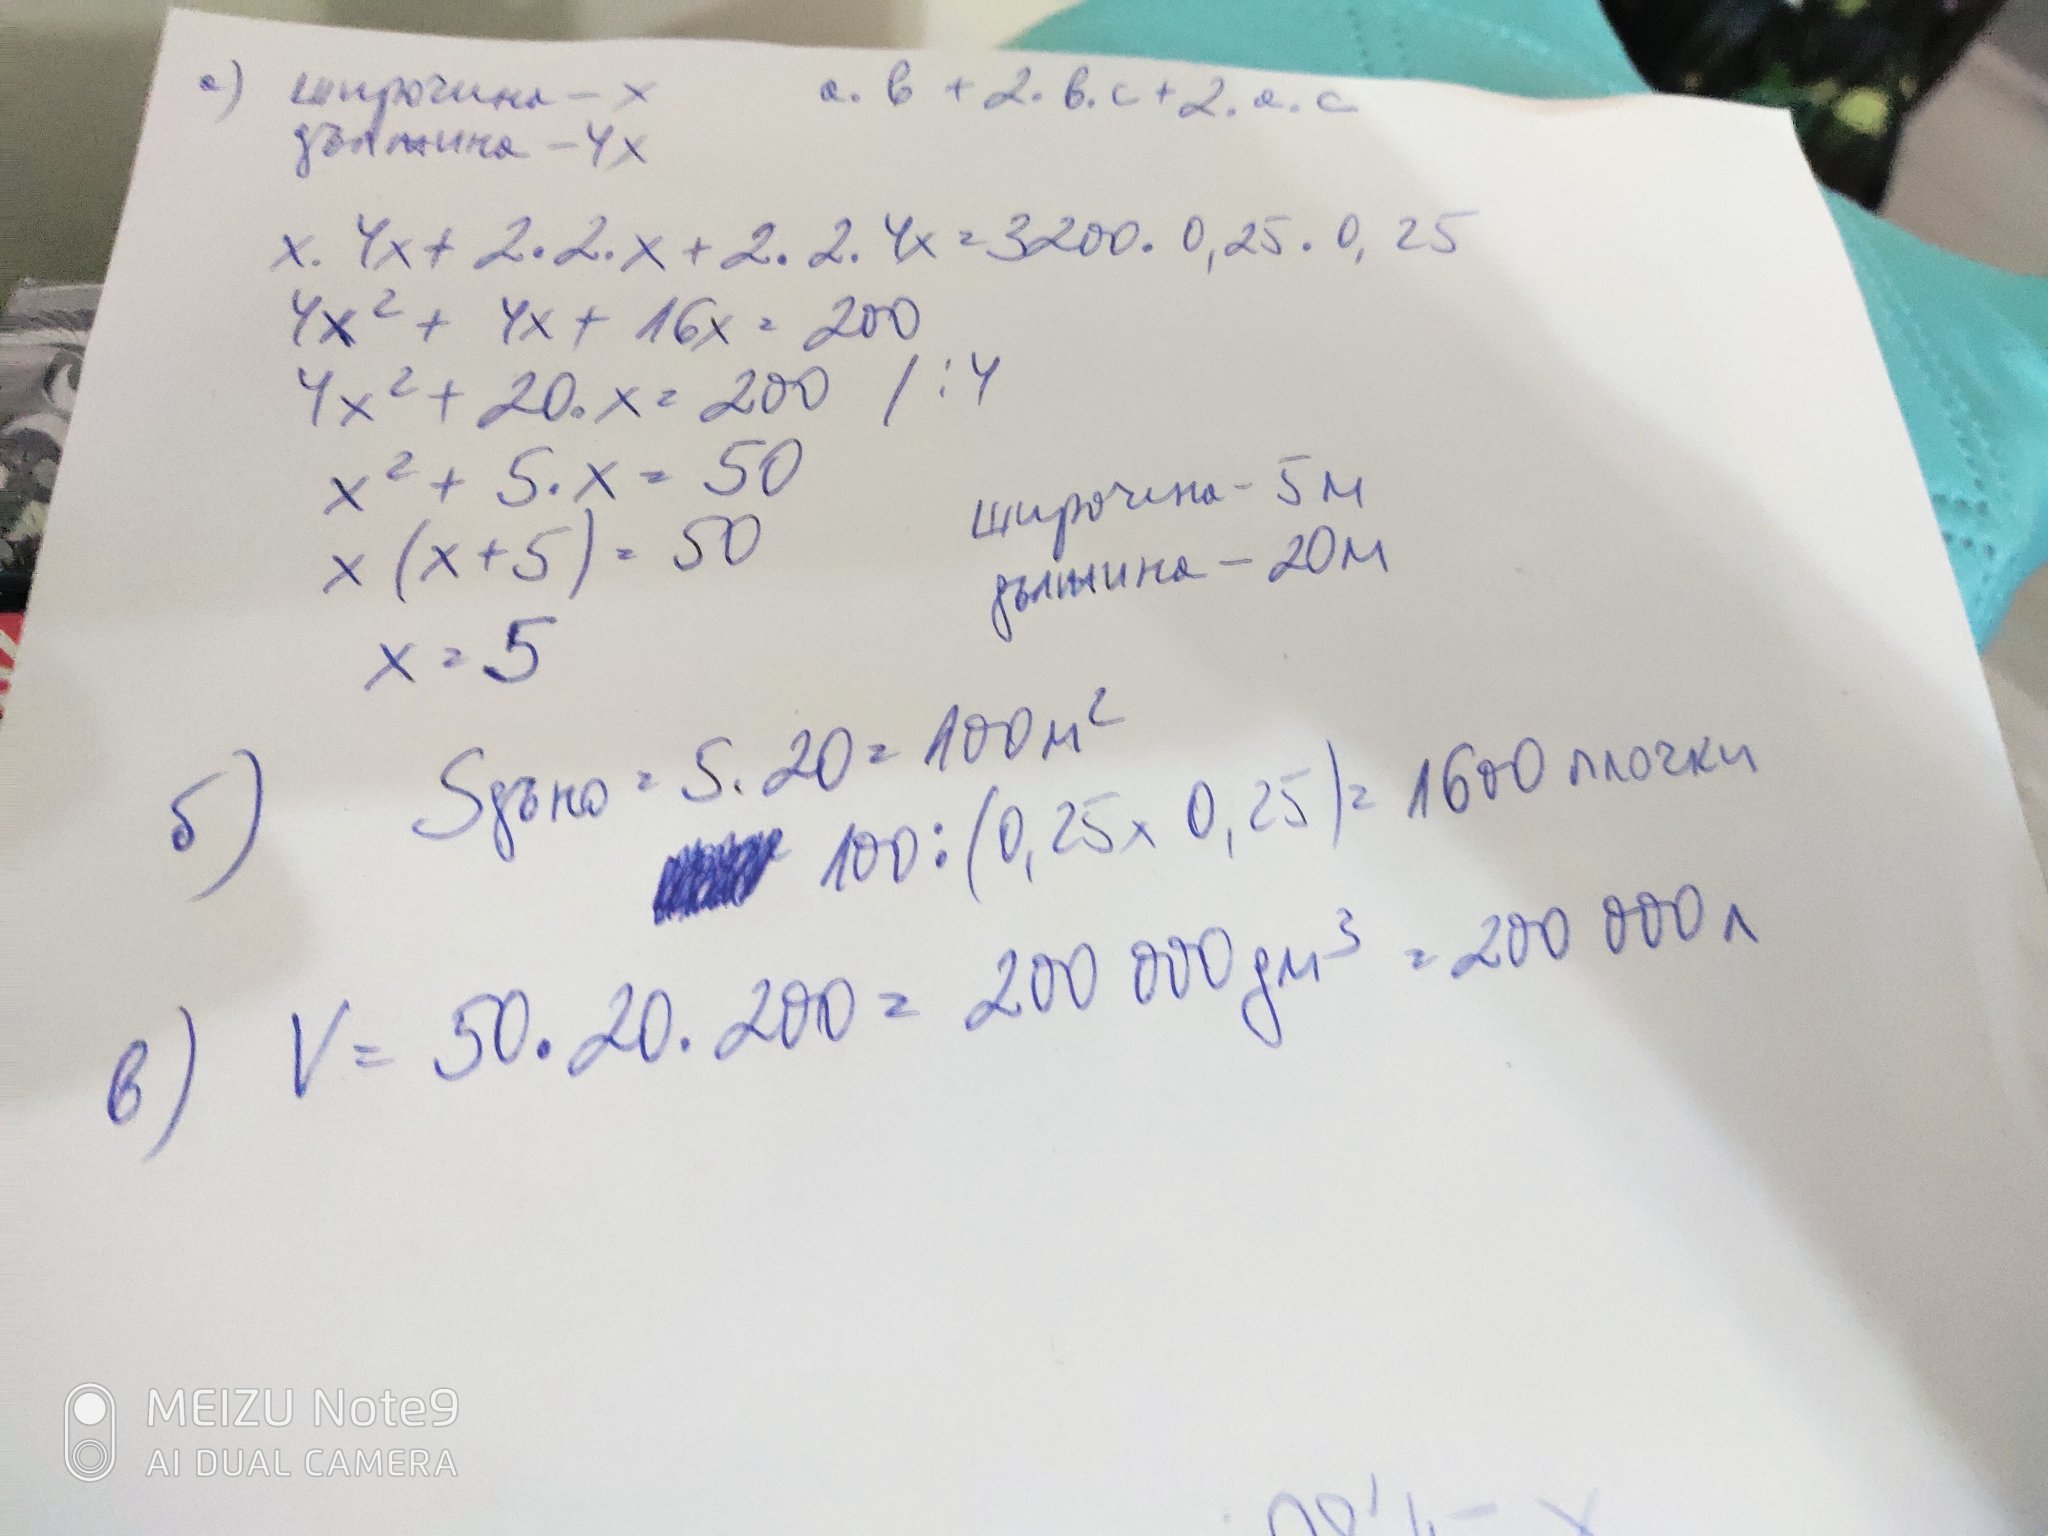 а) широчина - x
a.b + 2.b.c + 2.a.c
дължина - 4x
x.4x + 2.2.x + 2.2.4x = 3200.0,25.0,25
4x² + 4x + 16x = 200
4x² + 20.x = 200 /:4
x² + 5.x = 50
x(x+5) = 50
x = 5
широчина - 5м
дължина - 20м
б) Sдъно = 5.20 = 100м²
100:(0,25x0,25) = 1600 плочки
в) V = 50.20.200 = 200 000 дм³ = 200 000 л
MEIZU Note9
AI DUAL CAMERA